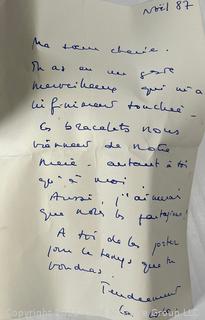 Noël 87
Ma sœur chérie.
Tu as eu un geste
merveilleux qui m'a
infiniment touchée -
Ces bracelets nous
viennent de notre
Mère. autant à toi
qu'à moi.
Aussi, j'aimerais
que nous les partagions
A toi de les porter
pour le temps que tu
voudras.
Tendrement